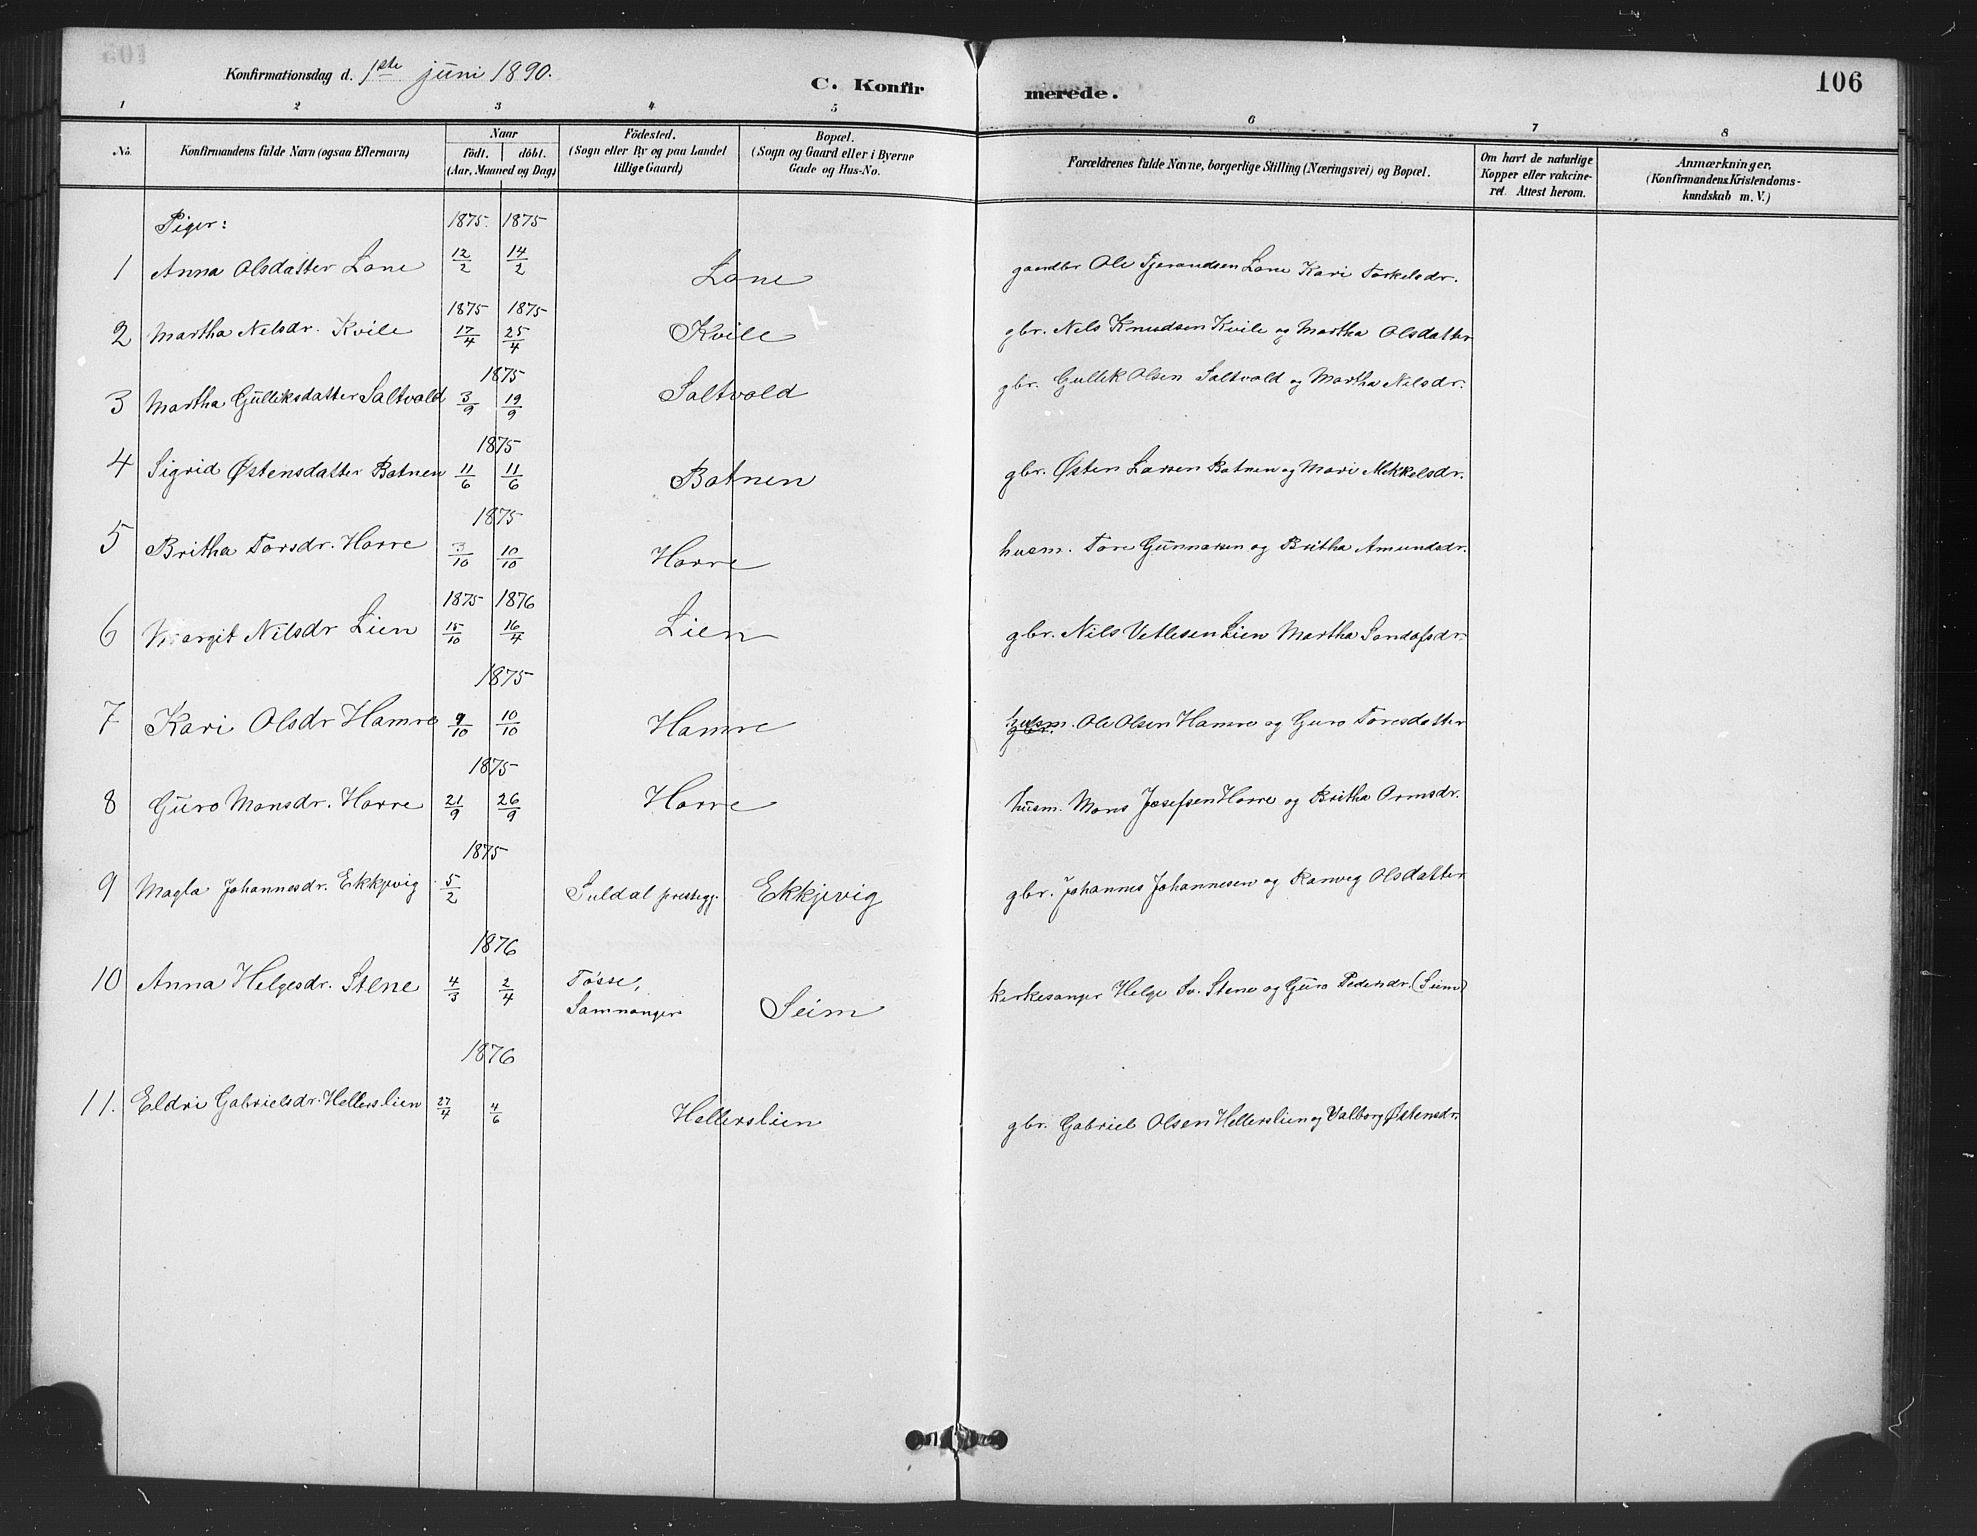 Konfirmationsdag d. 1ste juni 1890.
C. Konfirmerede.
106
1 2 3 4 5 6 7 8
No. Konfirmandens fulde Navn (ogsaa Efternavn) Naar födt. döbt. (Aar, Maaned og Dag) Födested. (Sogn eller By og paa Landet tillige Gaard) Bopæl. (Sogn og Gaard eller i Byerne Gade og Hus-No. Forældrenes fulde Navne, borgerlige Stilling (Næringsvei) og Bopæl. Om havt de naturlige Kopper eller vakcineret. Attest herom. Anmærkninger, (Konfirmandens Kristendomskundskab m. V.)
Piger: 1875. 1875
1 Anna Olsdatter Lone 12/2 14/2 Lone gaardbr Ole Tjerandsen Lone Kari Torkelsdr.
1875 1875
2 Martha Nelsdr. Kvile 17/4 25/4 Kvile gbr. Nels Knudsen Kvile og Martha Olsdatter
1875
3 Martha Gulliksdatter Saltvold 3/9 19/9 Saltvold gbr. Gullik Olsen Saltvold og Martha Nilsdr.
1875
4 Sigrid Østensdatter Botnen 11/6 11/6 Botnen gbr. Østen Larsen Botnen og Mari Mikkelsdr.
1875
5 Britha Torsdr. Horre 3/10 10/10 Horre husm. Tore Gunnarsen og Britha Amundsdr.
1875 1876
6 Margit Nilsdr Lien 15/10 16/4 Lien gbr. Nils Vetlesen Lien Martha Sandofsdr.
1875
7 Kari Olsdr Hamre 9/10 10/10 Hamre husm. Ole Olsen Hamre og Guro Toresdatter
1875
8 Guro Monsdr. Horre 21/9 26/9 Horre husm. Mons Josefsen Horre og Britha Ormsdr.
1875
9 Magla Johannesdr. Ekkjevig 5/2 Suldal prestegj. Ekkjevig gbr. Johannes Johannesen og Ranveg Olsdatter
1876
10 Anna Helgesdr. Stene 4/3 2/4 Tøsse, Samnanger Seim kirkesanger Helge Sv. Stene og Guro Pedersdr. (Seim)
1876
11. Eldri Gabrielsdr. Hellerslien 27/4 4/6 Hellerslien gbr. Gabriel Olsen Hellerslien og Valborg Østensdr.